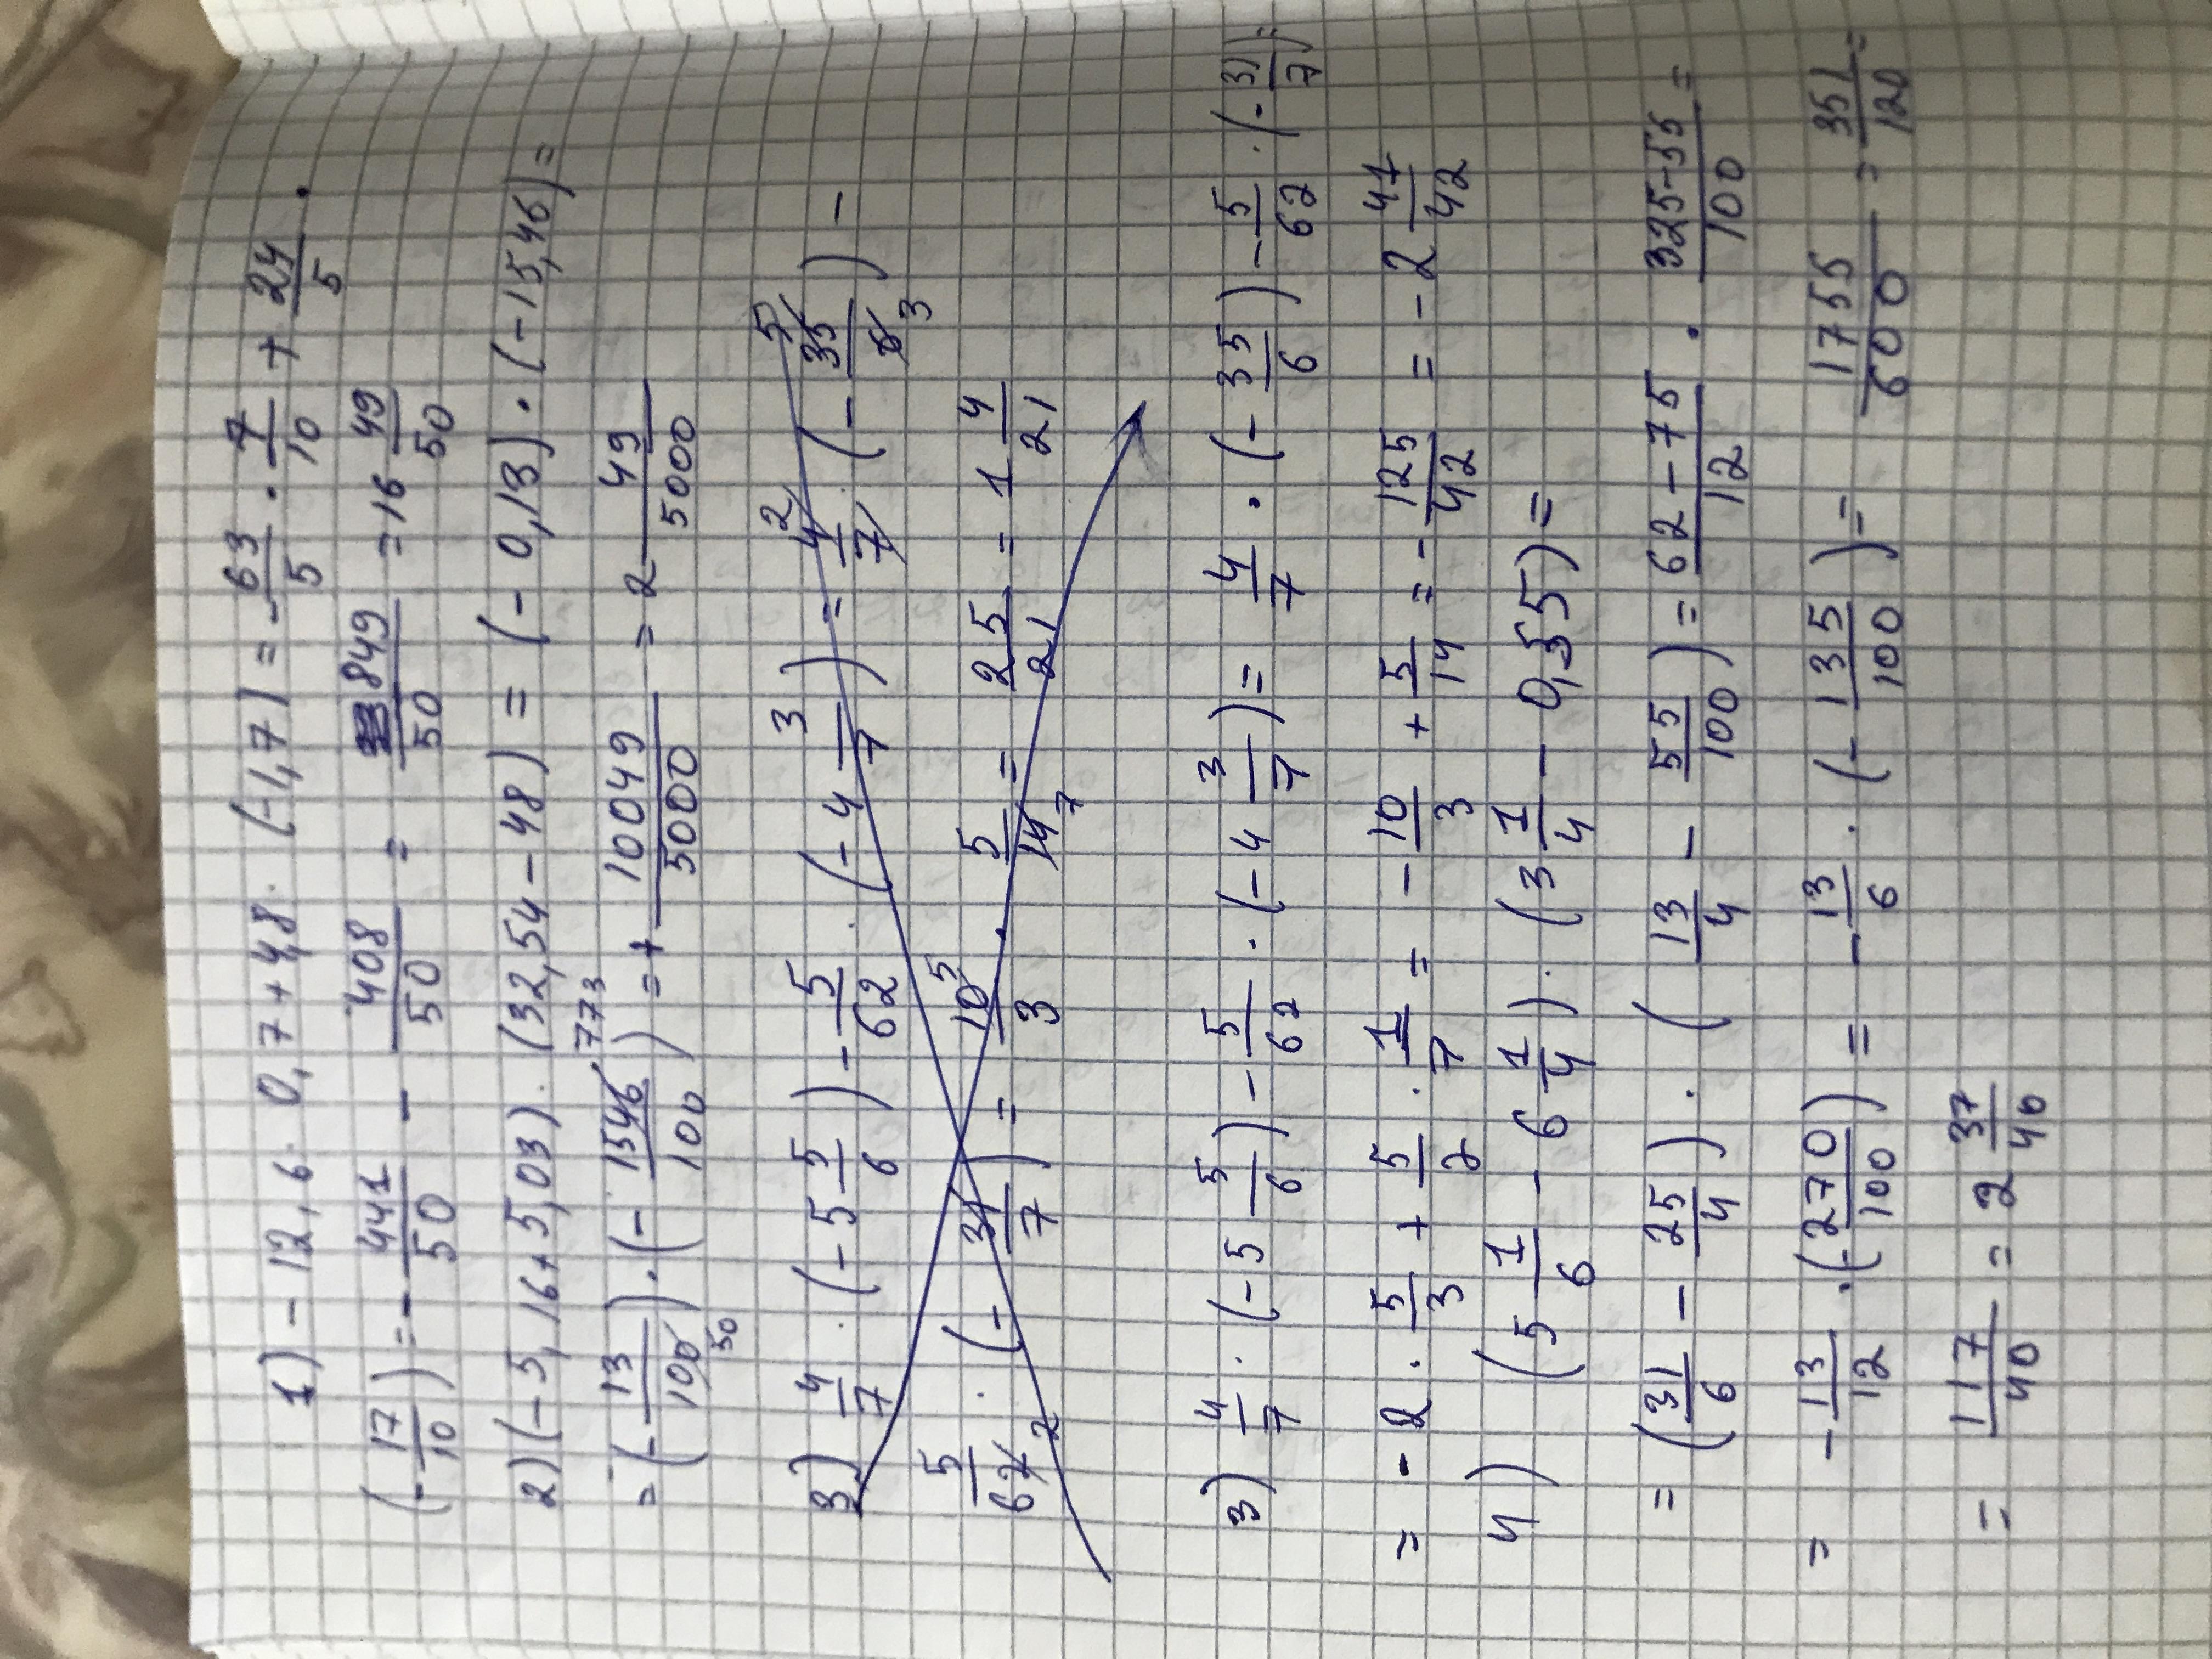 1) - 12,6 · 0,7 + 4,8 · (-1,7) = - 63/5 · 7/10 + 24/5 ·
(- 17/10) = - 441/50 - 408/50 = 849/50 = 16 49/50
2) (-5,16+5,03) · (32,54-48) = (-0,13) · (-15,46) =
= (- 13/100 50) · (- 1546 773/100) = + 10049/5000 = 2 49/5000
3) 4/7 · (-5 5/6) - 5/62 · (-4 3/7) = 4 2/7 · (- 35 5/6 3) -
5/62 2 · (- 31/7) = 10 5/3 · 5/14 7 = 25/21 = 1 4/21
3) 4/7 · (-5 5/6) - 5/62 · (-4 3/7) = 4/7 · (- 35/6) - 5/62 · (- 31/7) =
= -2 · 5/3 + 5/2 · 1/7 = - 10/3 + 5/14 = - 125/42 = -2 41/42
4) (5 1/6 - 6 1/4) · (3 1/4 - 0,55) =
= (31/6 - 25/4) · (13/4 - 55/100) = 62-75/12 · 325-55/100 =
= - 13/12 · (- 270/100) = - 13/6 · (- 135/100) = 1755/600 = 351/120 =
= 117/40 = 2 37/40